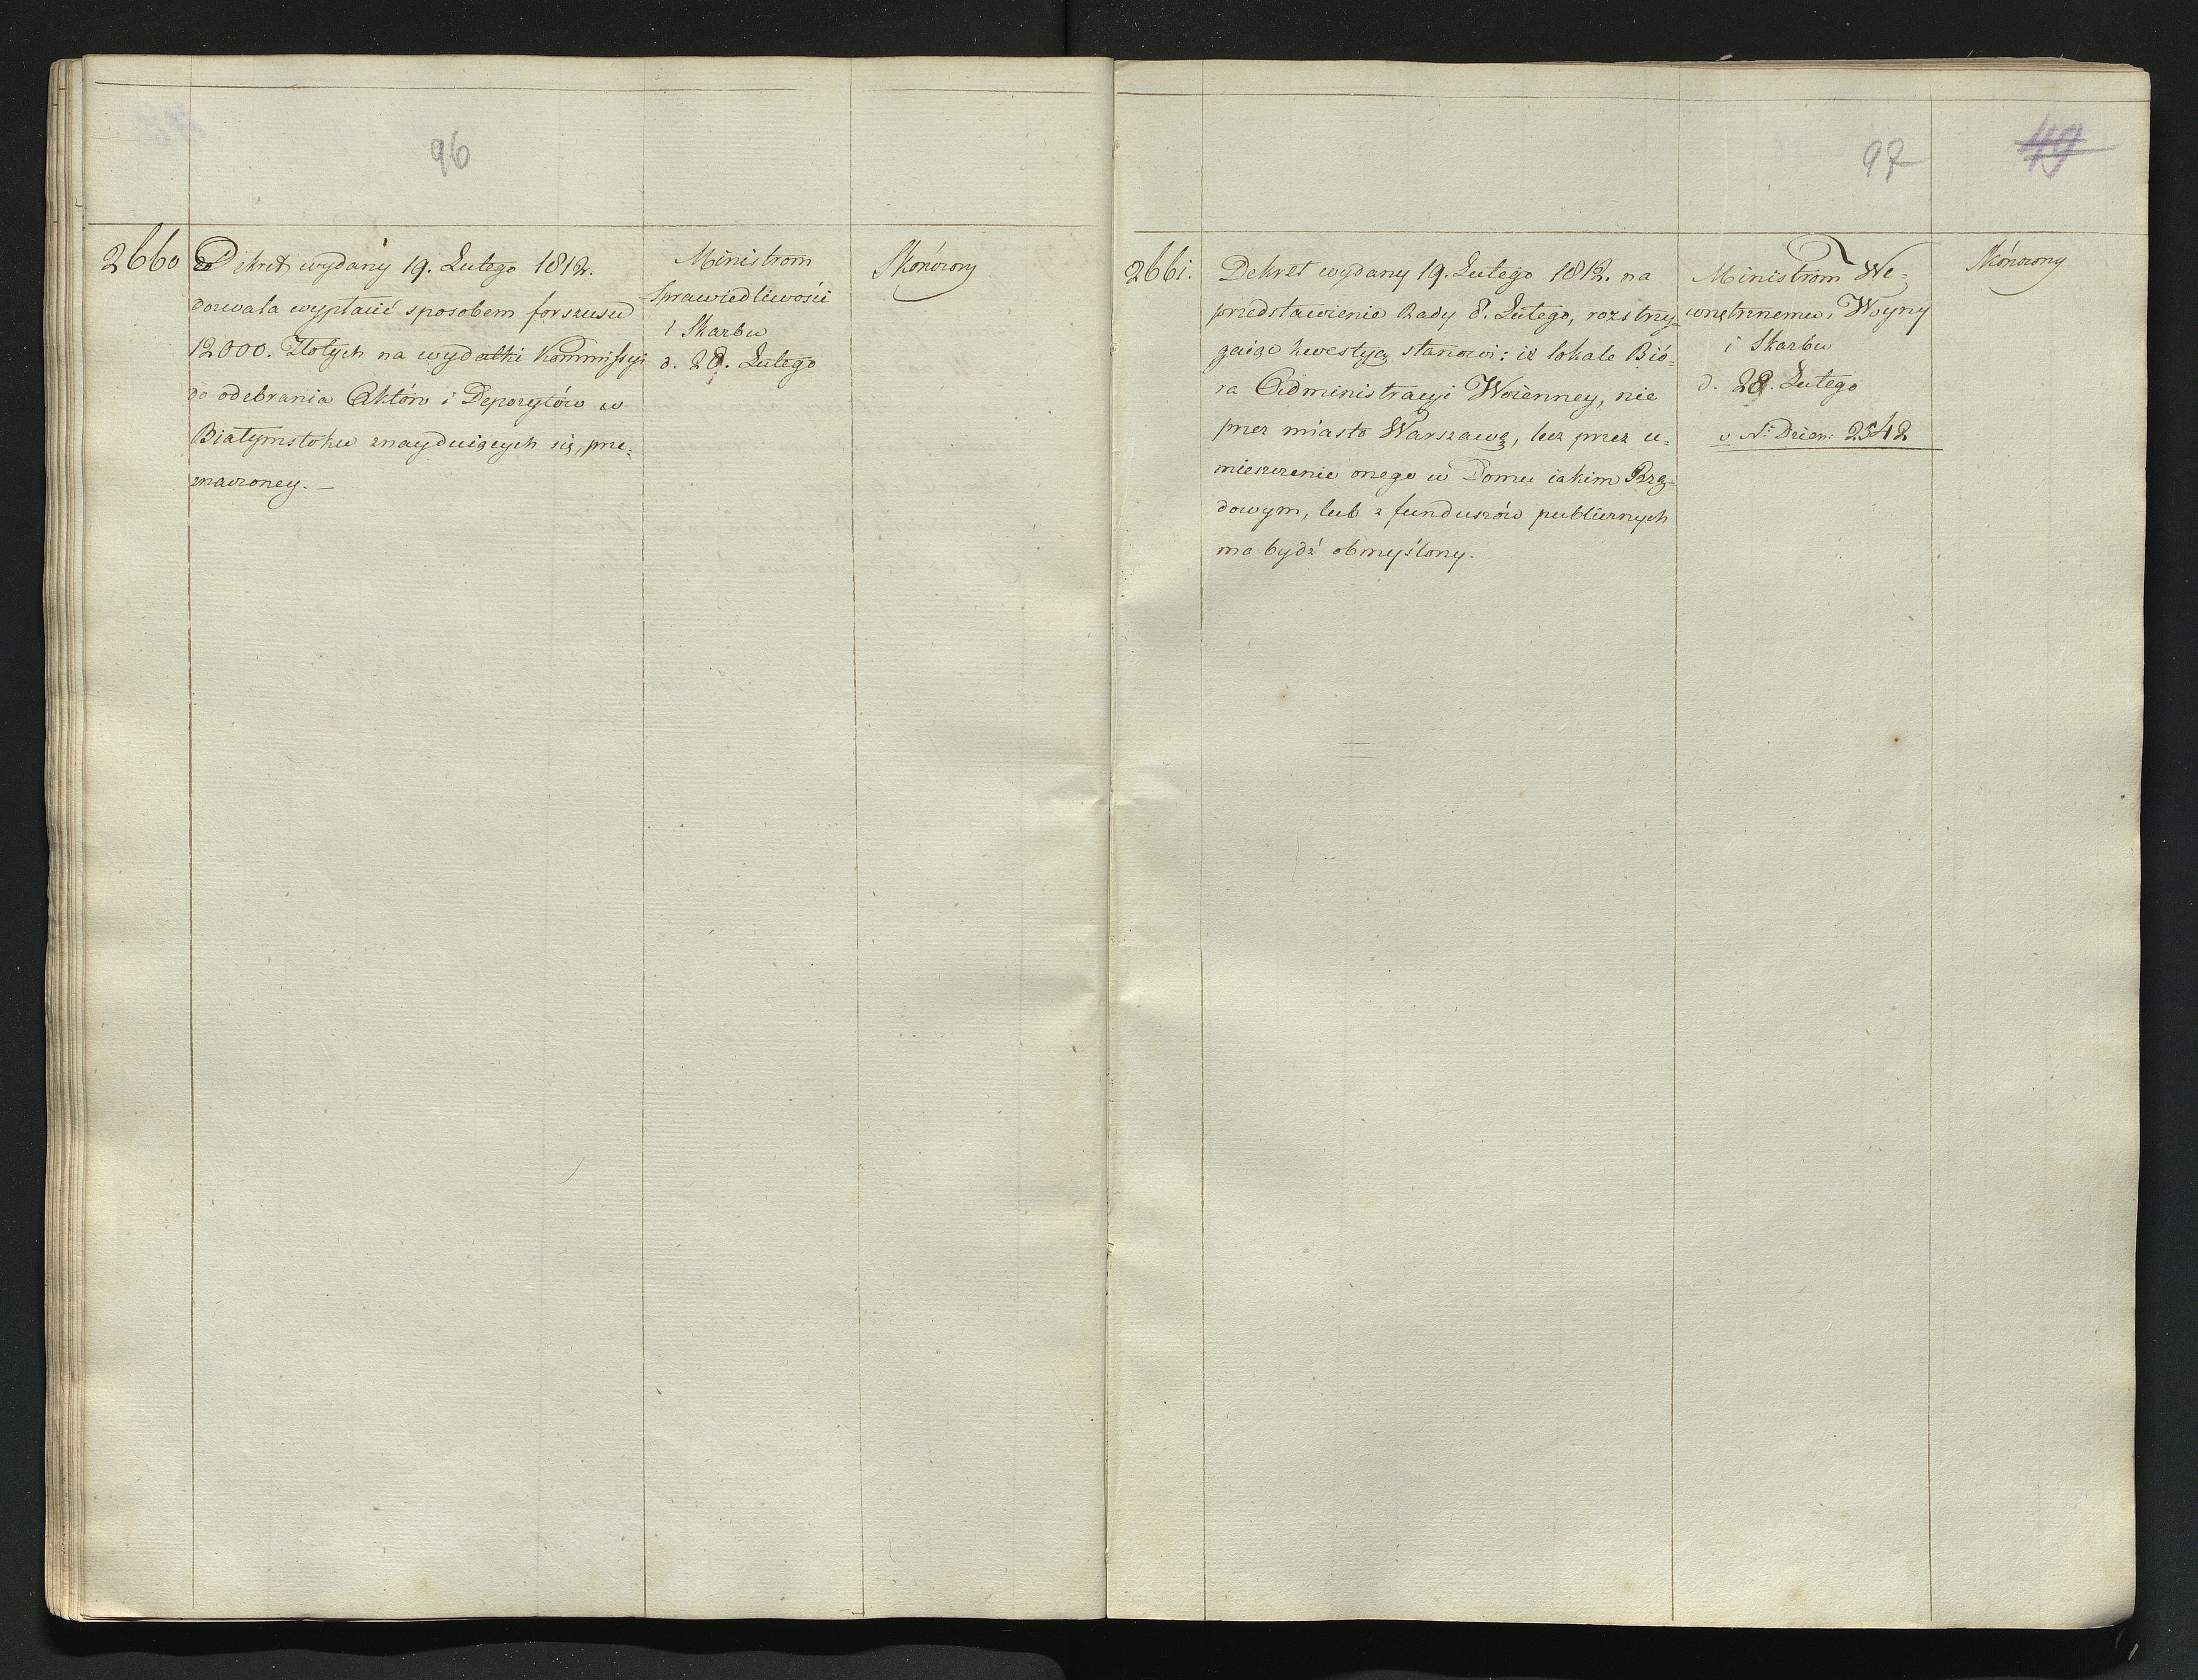 96
2660
Dekret wydany 19. Lutego 1812.
dozwala wypłacić sposobem forszusu
12000. Złotych na wydatki Kommissyi
do odebrania Aktów i Depozytów w
Białymstoku znayduiących się, prze-
znaczoney. —
Ministrom
Sprawiedliwości
i Skarbu
d. 28. Lutego
Skończony
97
49
2661.
Dekret wydany 19. Lutego 1812. na
przedstawienie Rady 8. Lutego, rozstrzy-
gaiąc kwestyą stanowi: iż lokale Bió-
ra Administracyi Woienney, nie
przez miasto Warszawę, lecz przez u-
mieszczenie onego w Domu iakim Rzą-
dowym, lub z funduszów publicznych
ma bydź obmyślony.
Ministrom We-
wnętrznemu, Woyny
i Skarbu
d. 28. Lutego
v. N: Dzien: 2542
Skończony